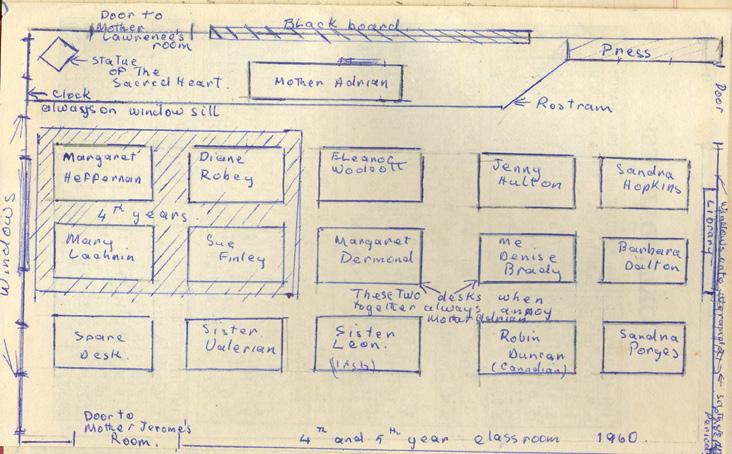 Door to
Mother
Lawrence's
room
Black board
Press
Statue
of The
Sacred Heart.
Mother Adrian
Clock
always on window sill
Rostram
Door
Windows
Margaret
Heffernan
Diane
Robey
Eleanor
Woolcott
Jenny
Hulton
Sandra
Hopkins
4th years.
Library
Mary
Lachnin
Sue
Finley
Margaret
Dermond
me
Denise
Brady
Barbara
Dalton
These Two desks when
together always annoy
Mother Adrian
Spare
Desk.
Sister
Valerian
Sister
Leon.
(Irish)
Robin
Duncan
(Canadian)
Sandra
Porges
Door to
Mother Jerome's
Room.
4th and 5th year classroom 1960.